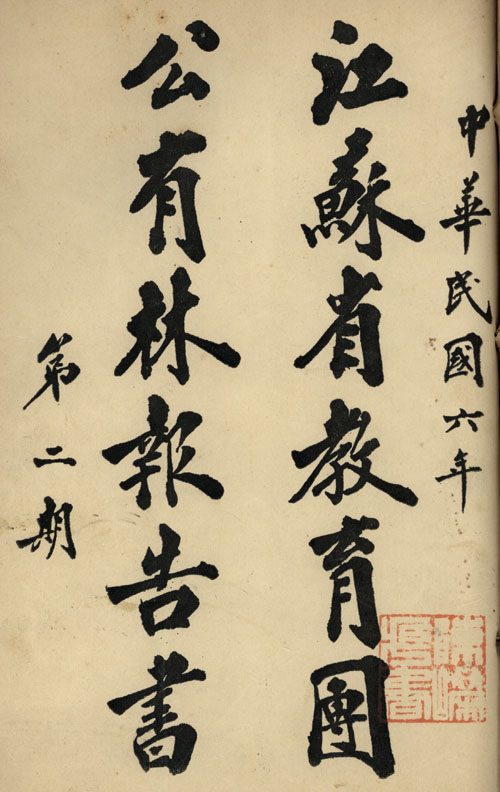 中華民國六年
江蘇省教育團
公有林報告書
第二期